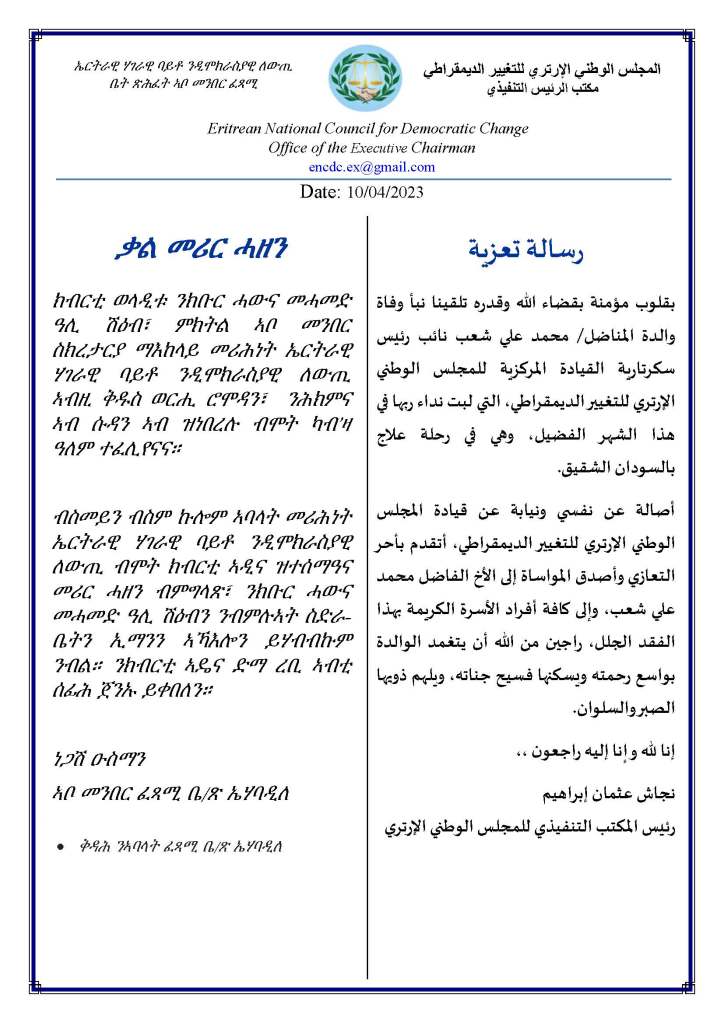 ኤርትራዊ ሃገራዊ ባይቶ ንዲሞክራስያዊ ለውጢ
ቤት ጽሕፈት ኣቦ መንበር ፈጻሚ
المجلس الوطني الإرتري للتغيير الديمقراطي
مكتب الرئيس التنفيذي
Eritrean National Council for Democratic Change
Office of the Executive Chairman
encdc.ex@gmail.com
Date: 10/04/2023
ቃል መሪር ሓዘን
ክብርቲ ወላዲቱ ንክቡር ሓውና መሓመድ
ዓሊ ሽዕብ፣ ምክትል ኣቦ መንበር
ስክረታርያ ማእከላይ መሪሕነት ኤርትራዊ
ሃገራዊ ባይቶ ንዲሞክራስያዊ ለውጢ
ኣብዚ ቅዱስ ወርሒ ሮሞዳን፣ ንሕክምና
ኣብ ሱዳን ኣብ ዝነበረሉ ብሞት ካብ'ዛ
ዓለም ተፈሊየናና።
ብስመይን ብስም ኩሎም ኣባላት መሪሕነት
ኤርትራዊ ሃገራዊ ባይቶ ንዲሞክራስያዊ
ለውጢ ብሞት ክብርቲ ኣዲና ዝተሰማዓና
መሪር ሓዘን ብምግላጽ፣ ንክቡር ሓውና
መሓመድ ዓሊ ሽዕብን ንብምሉኣት ስድራ-
ቤትን ኢማንን ኣኻእሎን ይሃብብኩም
ንብል። ንክብርቲ ኣዴና ድማ ረቢ ኣብቲ
ሰፊሕ ጀንኡ ይቀበለን።
ነጋሽ ዑስማን
ኣቦ መንበር ፈጻሚ ቤ/ጽ ኤሃባዲለ
• ቅዳሕ ንኣባላት ፈጻሚ ቤ/ጽ ኤሃባዲለ
رسالة تعزية
بقلوب مؤمنة بقضاء الله وقدره تلقينا نبأ وفاة
والدة المناضل/ محمد علي شعب نائب رئيس
سكرتارية القيادة المركزية للمجلس الوطني
الإرتري للتغيير الديمقراطي، التي لبت نداء ربها في
هذا الشهر الفضيل، وهي في رحلة علاج
بالسودان الشقيق.
أصالة عن نفسي ونيابة عن قيادة المجلس
الوطني الإرتري للتغيير الديمقراطي، أتقدم بأحر
التعازي وأصدق المواساة إلى الأخ الفاضل محمد
علي شعب، وإلى كافة أفراد الأسرة الكريمة بهذا
الفقد الجلل، راجين من الله أن يتغمد الوالدة
بواسع رحمته ويسكنها فسيح جناته، ويلهم ذويها
الصبر والسلوان.
إنا لله وإنا إليه راجعون ،،
نجاش عثمان إبراهيم
رئيس المكتب التنفيذي للمجلس الوطني الإرتري